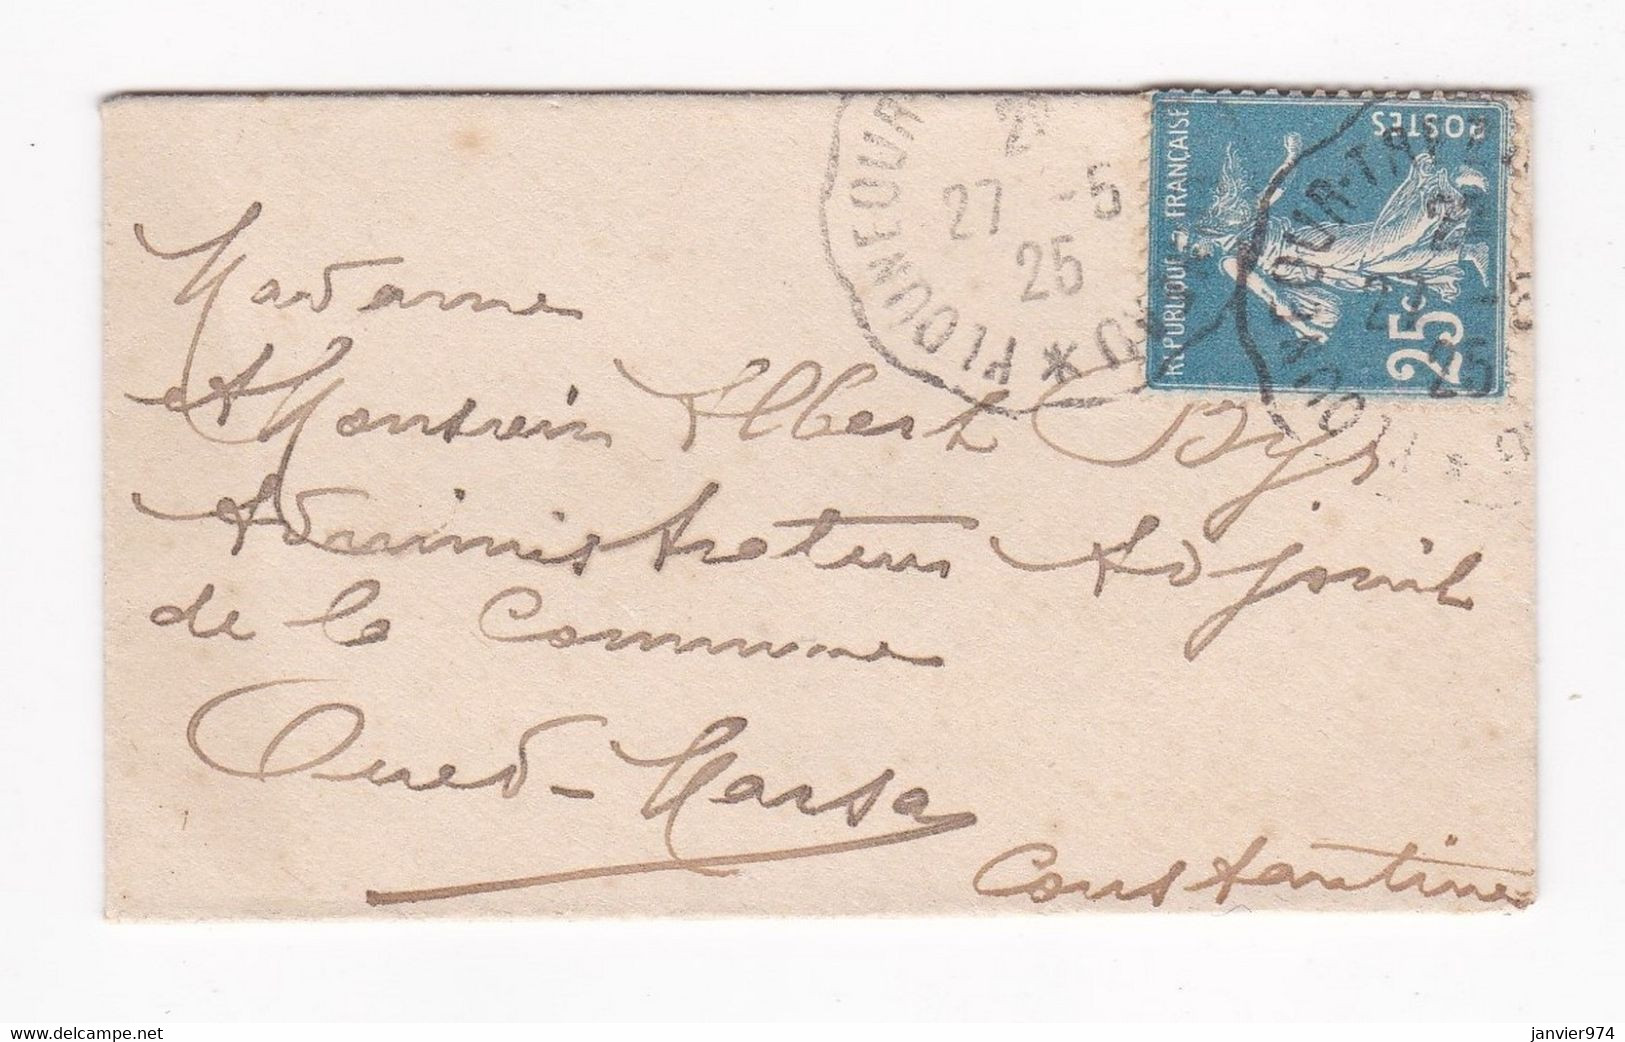 PLOUNEOUR
27 -5
25
RÉPUBLIQUE FRANÇAISE
POSTES
25c
Madame
et Monsieur Albert Bijs
Administrateur Adjoint
de la Commune
Oued-Marsa
Constantine
delcampe.net
janvier974